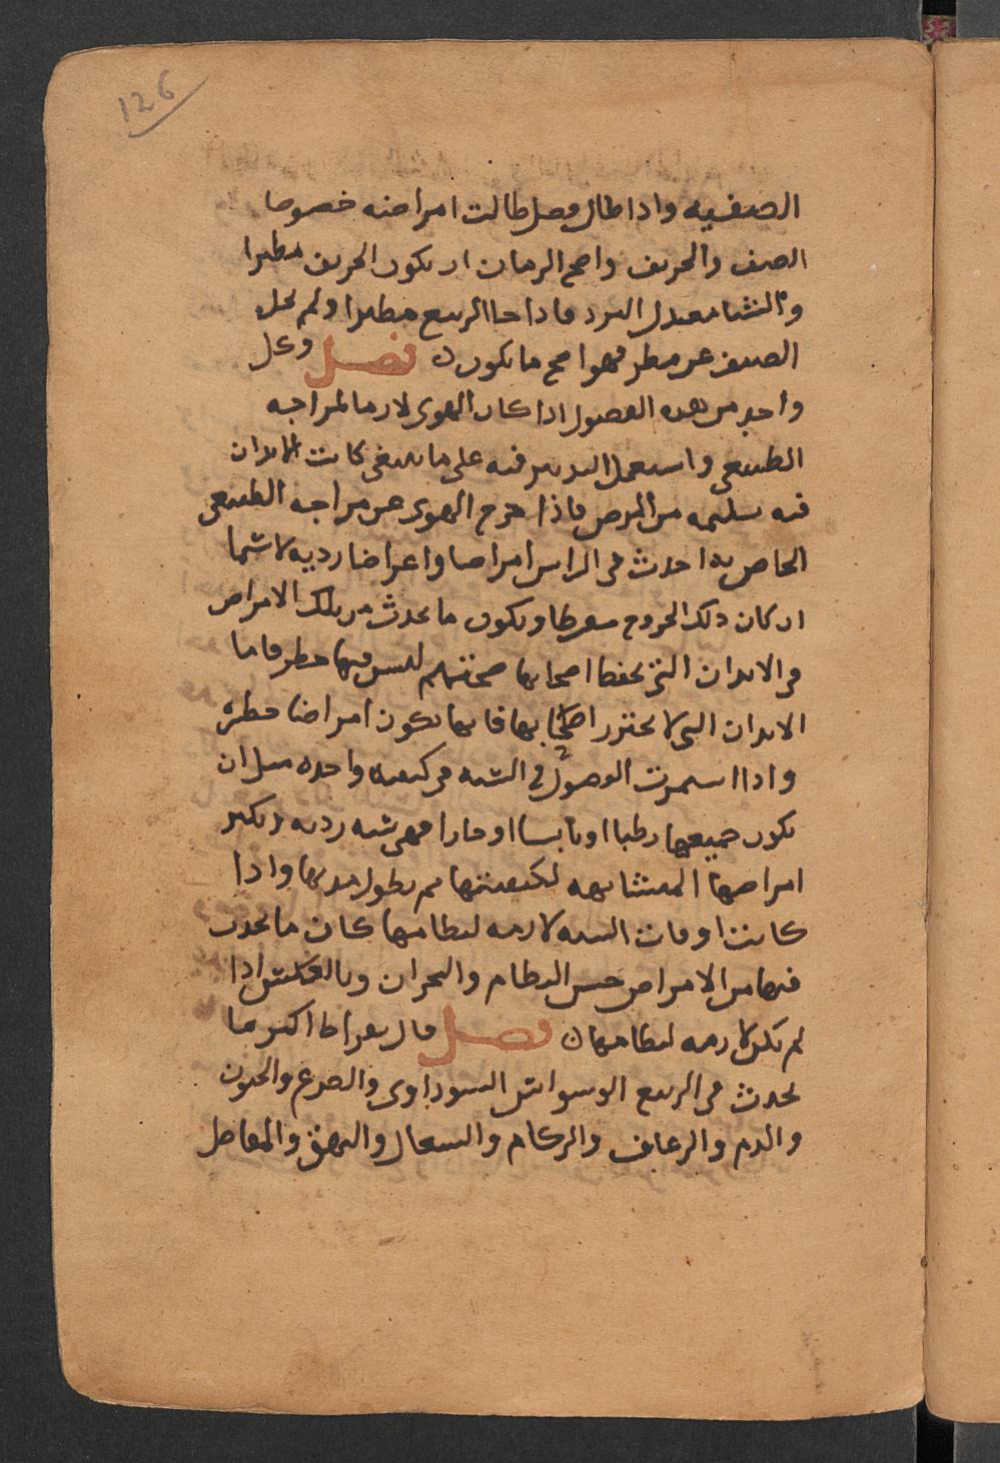 126
الصيفيه واذا طال فصل طالت امراضه خصوصا
الصيف والخريف واصح الزمان ان يكون الخريف مطيرا
والشتا معتدل البرد فاذا جا الربيع مطيرا ولم يخل
الصيف عن مطر فهو اصح ما يكون ن فصل وكل
واحد من هذه الفصول اذا كان الهوى لازما لمزاجه
الطبيعى واستعمل التدبير فيه على ما ينبغى كانت الابدان
فيه سليمه من المرض فاذا خرج الهوى عن مزاجه الطبيعى
الخاص به احدث فى الراس امراضا واعراضا رديه لا سيما
ان كان ذلك الخروج مفرطا ويكون ما يحدث من تلك الامراض
فى الابدان التى يحفظ اصحابها صحتهم ليس فيها خطر فاما
الابدان التى لا يحترز اصحابها فانها تكون امراضا خطره
واذا استمرت الفصول فى السنه فى كيفيه واحده مثل ان
يكون جميعها رطبا او يابسا او حارا فهى سنه رديه ويكثر
امراضها المتشابهه لكيفيتها ثم يطول مدتها واذا
كانت اوقات السنه لازمه لنظامها كان ما يحدث
فيها من الامراض حسن النظام والبحران وبالعكس اذا
لم يكن لازمه لنظامها ن فصل قال بقراط اكثر ما
يحدث فى الربيع الوسواس السوداوى والصرع والجنون
والدم والرعاف والزكام والسعال والبهق والمفاصل